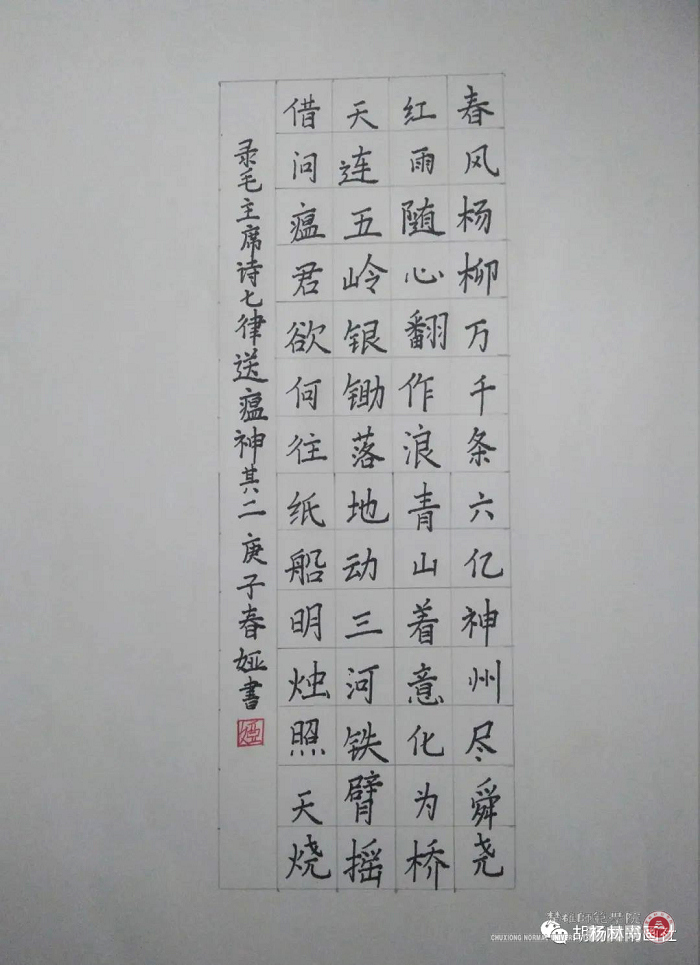 春风杨柳万千条六亿神州尽舜尧
红雨随心翻作浪青山着意化为桥
天连五岭银锄落地动三河铁臂摇
借问瘟君欲何往纸船明烛照天烧
录毛主席诗七律送瘟神其二 庚子春娅書
娅
楚雄师范学院
CHUXIONG NORMAL UNIVERSITY
胡杨林书画社